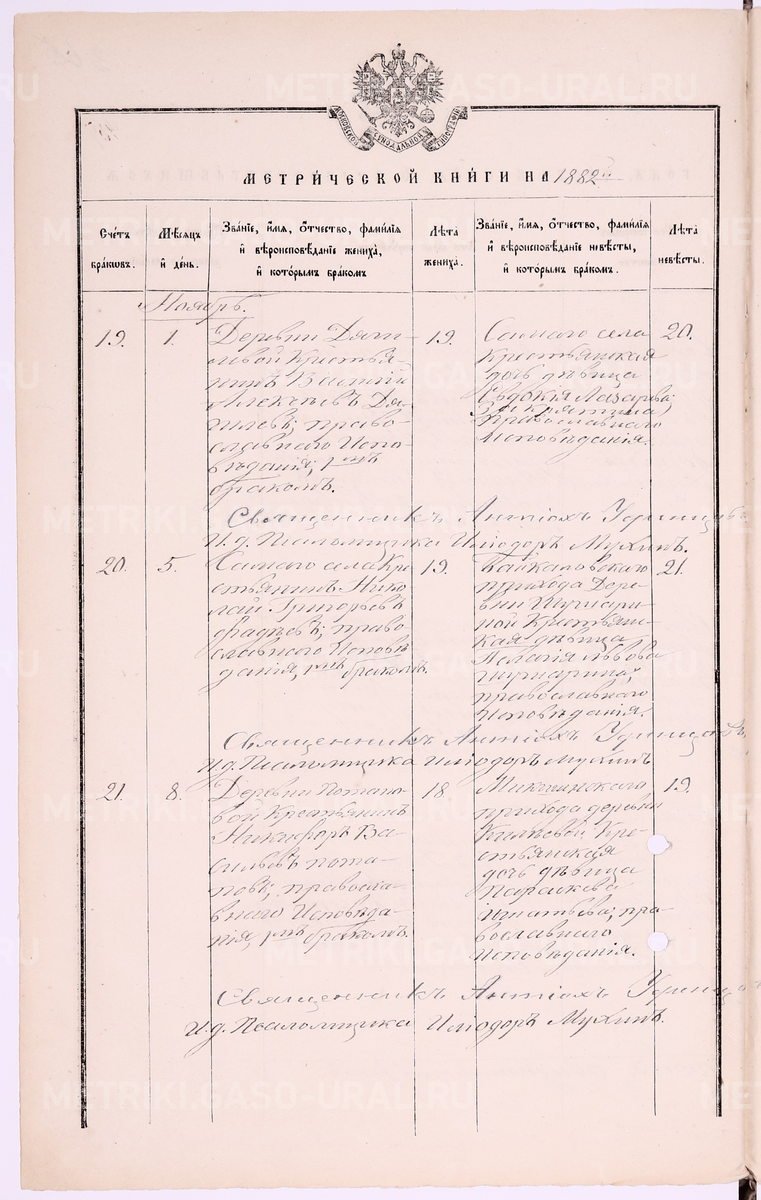 МЕТРИ́ЧЕСКОЙ КНИ́ГИ НА 1882 г.
Сче́тъ бра́ковъ.
Мѣ́сяцъ и҆ де́нь.
Зва́нїе, и҆́мѧ, ѻ҆́тчество, фамı́лїѧ и҆ вѣроисповѣ́данїе жениха̀, и҆ кото́рымъ бра́комъ
Лѣ́та жениха.
Зва́нїе, и҆́мѧ, ѻ҆́тчество, фамı́лїѧ и҆ вѣроисповѣ́данїе невѣ́сты, и҆ кото́рымъ бра́комъ.
Лѣ́та невѣ́сты.
Ноябрь.
19.
1.
Деревни Дяги-
левой Крестья-
нинъ
Алексѣевъ Дя-
гилевъ; право-
славнаго Испо-
вѣданія; 1мъ
бракомъ.
19.
Самаго села
Крестьянская
дочь дѣвица
Евдокія Лазарева
православнаго
Исповѣданія.
20.
Священникъ Антіохъ
И. д. Псаломщика Иліодоръ Мухинъ.
20.
5.
Самаго села Кре-
стьянинъ Нико-
лай Григорьевъ
Фадѣевъ; право-
славнаго Исповѣ-
данія, 1мъ бракомъ.
19.
Байкаловскаго
прихода Дере-
вни
ной Крестьян-
ская дѣвица
Пелагія Львова
православнаго
Исповѣданія.
21.
Священникъ Антіохъ
И. д. Псаломщика Иліодоръ Мухинъ
21.
8.
Деревни Потапо-
вой Крестьянинъ
Никифоръ Ва-
сильевъ Пота-
повъ; правосла-
внаго Исповѣда-
нія, 1мъ бракомъ.
18.
прихода деревни
Кре-
стьянская
дочь дѣвица
Параскева
Игнатьева; пра-
вославнаго
Исповѣданія.
19.
Священникъ Антіохъ
И. д. Псаломщика Иліодоръ Мухинъ.
METRIKI.GASO-URAL.RU